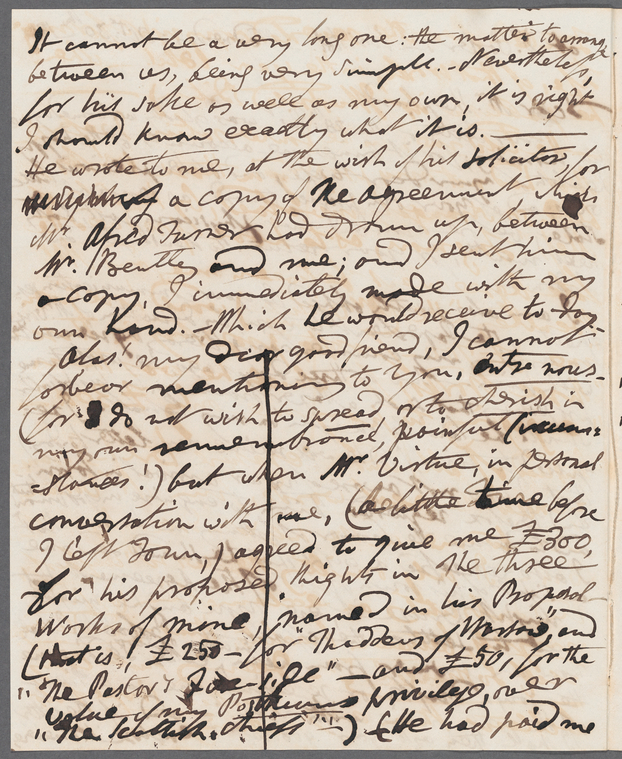 It cannot be a very long one: the matter to arrange
between us, being very simple. - Nevertheless,
for his sake as well as my own, it is right
I should know exactly what it is. ———
He wrote to me, at the wish of his solicitor, for
a copy of the agreement, which
Mr. Alfred Turner had drawn up, between
Mr. Bentley and me; and I sent him
a copy, I immediately made with my
own hand. - Which he would receive to-day
Alas! my dear good friend, I cannot
forbear mentioning to you, entre nous -
(for I do not wish to spread or to cherish in
my own remembrance, painful circum=
=stances!) but when Mr. Virtue, in personal
conversation with me, (a little time before
I left Town,) agreed to give me £300,
for his proposed Rights in the three
Works of mine, named in his Proposal
(that is, £250 - for "Thaddeus of Warsaw", and
"The Pastor's Fire-side" - and £50, for the
value of my Posthumous privilege, over
"The Scottish Chiefs" - ) (He had paid me